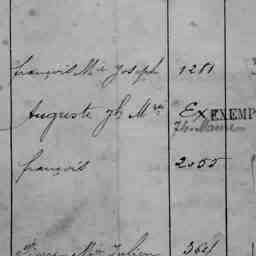 françois Mie Joseph 1281
Auguste Jh Mie Ex EXEMP
françois 2055
Pierre Mie Julien 364